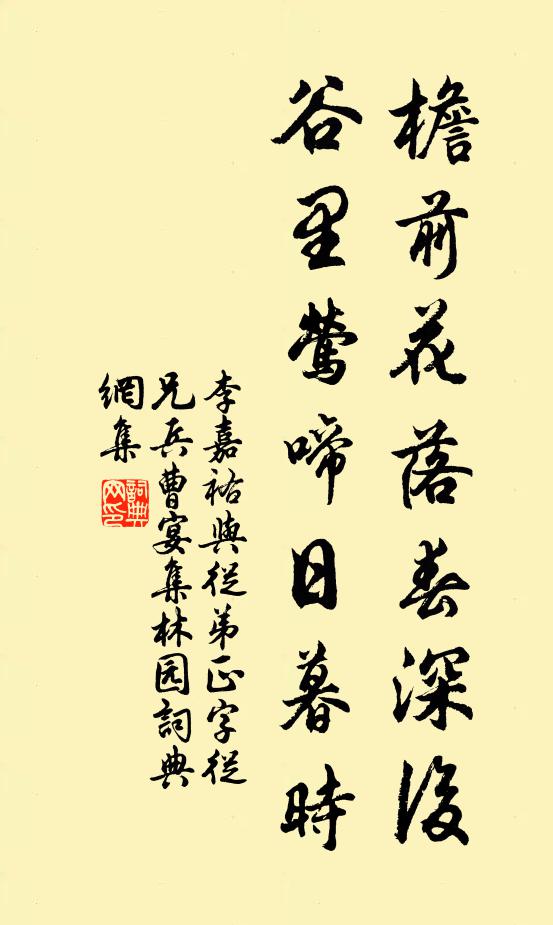 檐前花落春深後
谷里鶯啼日暮時
李嘉祐與從弟正字從
兄兵曹宴集林园詞典
網集
詞典網印